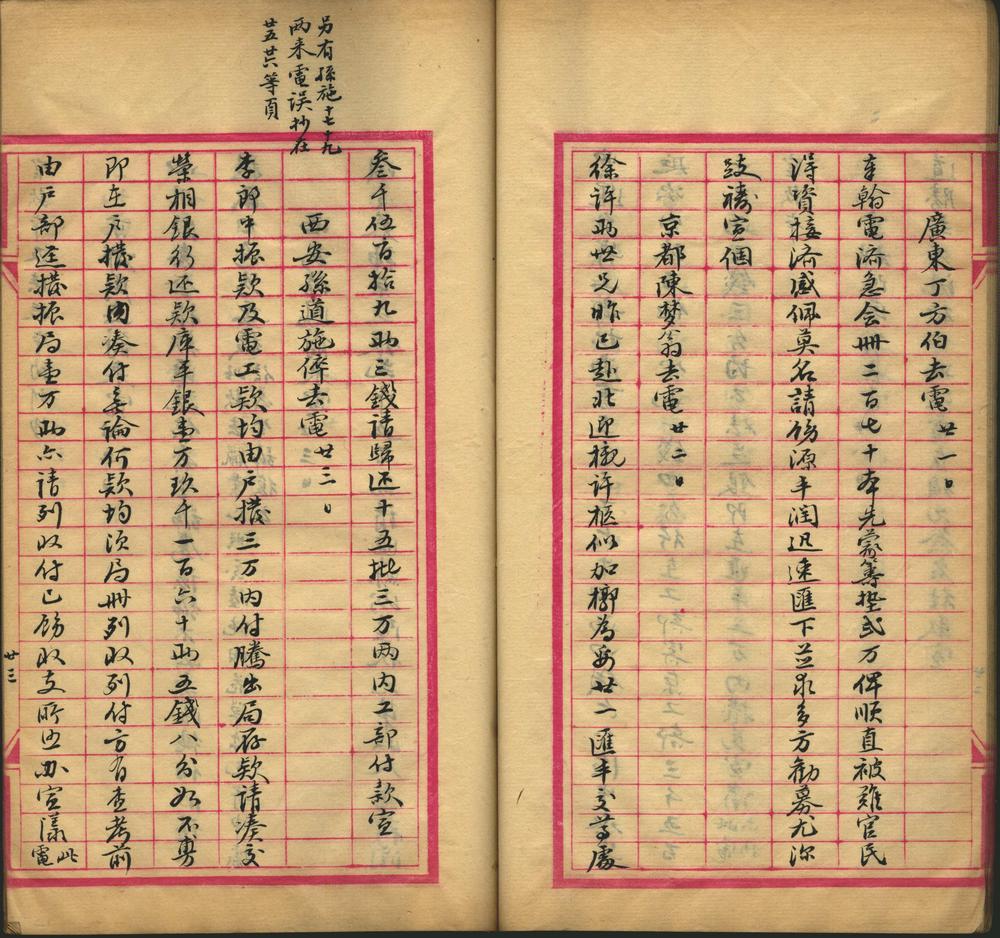 廣東丁方伯去電 廿一日
幸翰電濟急会冊二百七十本先蒙籌墊弍万俾順直被難官民
得資接濟感佩莫名請飭源丰潤迅速匯下並求多方勸募尤深
跂禱宣個
京都陳梦翁去電 廿二日
徐許两世兄昨已赴北迎櫬許柩似加槨為妥廿一匯丰交尊處
叁千伍百拾九两三錢請歸还十五批三万两内工部付款宣
西安孫道施倅去電 廿三日
李郎中振款及電工款均由戶撥三万内付騰出局存款請湊交
榮相銀行还款庫平銀壹万玖千一百六十两五錢八分如不旉
即在戶撥款内湊付無論何款均須局冊列收列付方有查考前
由戶部送撥振局壹万两亦請列收付已飭收支所迅办宣漾 此電
另有孫施十七十九
两来電误抄在
廿五廿六等頁
廿三